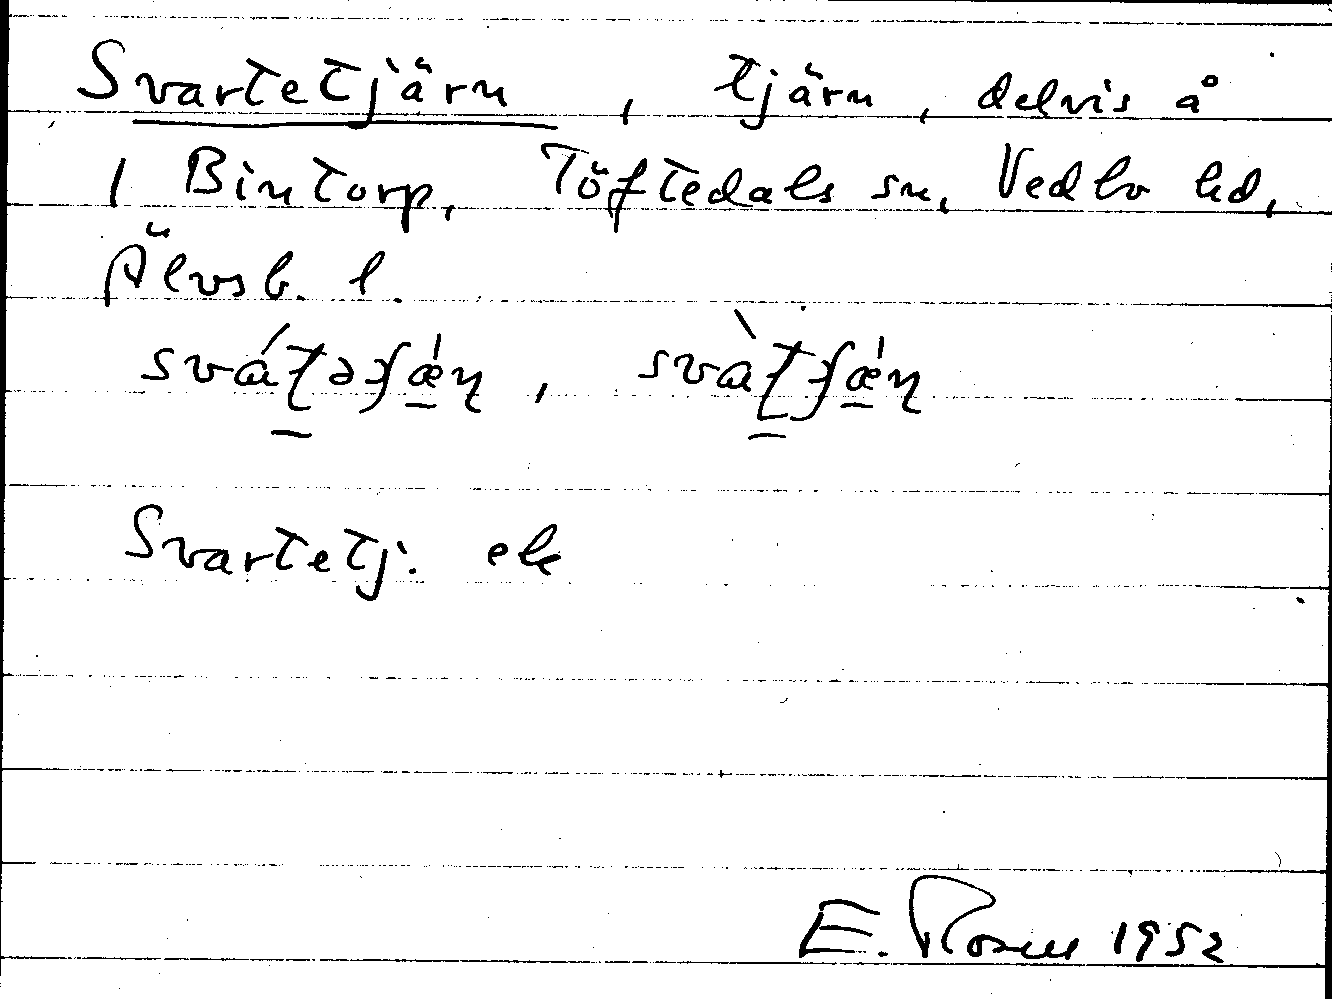 Svartetjärn, tjärn, delvis å
1 Bintorp, Töftedals sn, Vedbo hd,
Älvsb. l.
Svartetj. ek
E. Rosell 1952